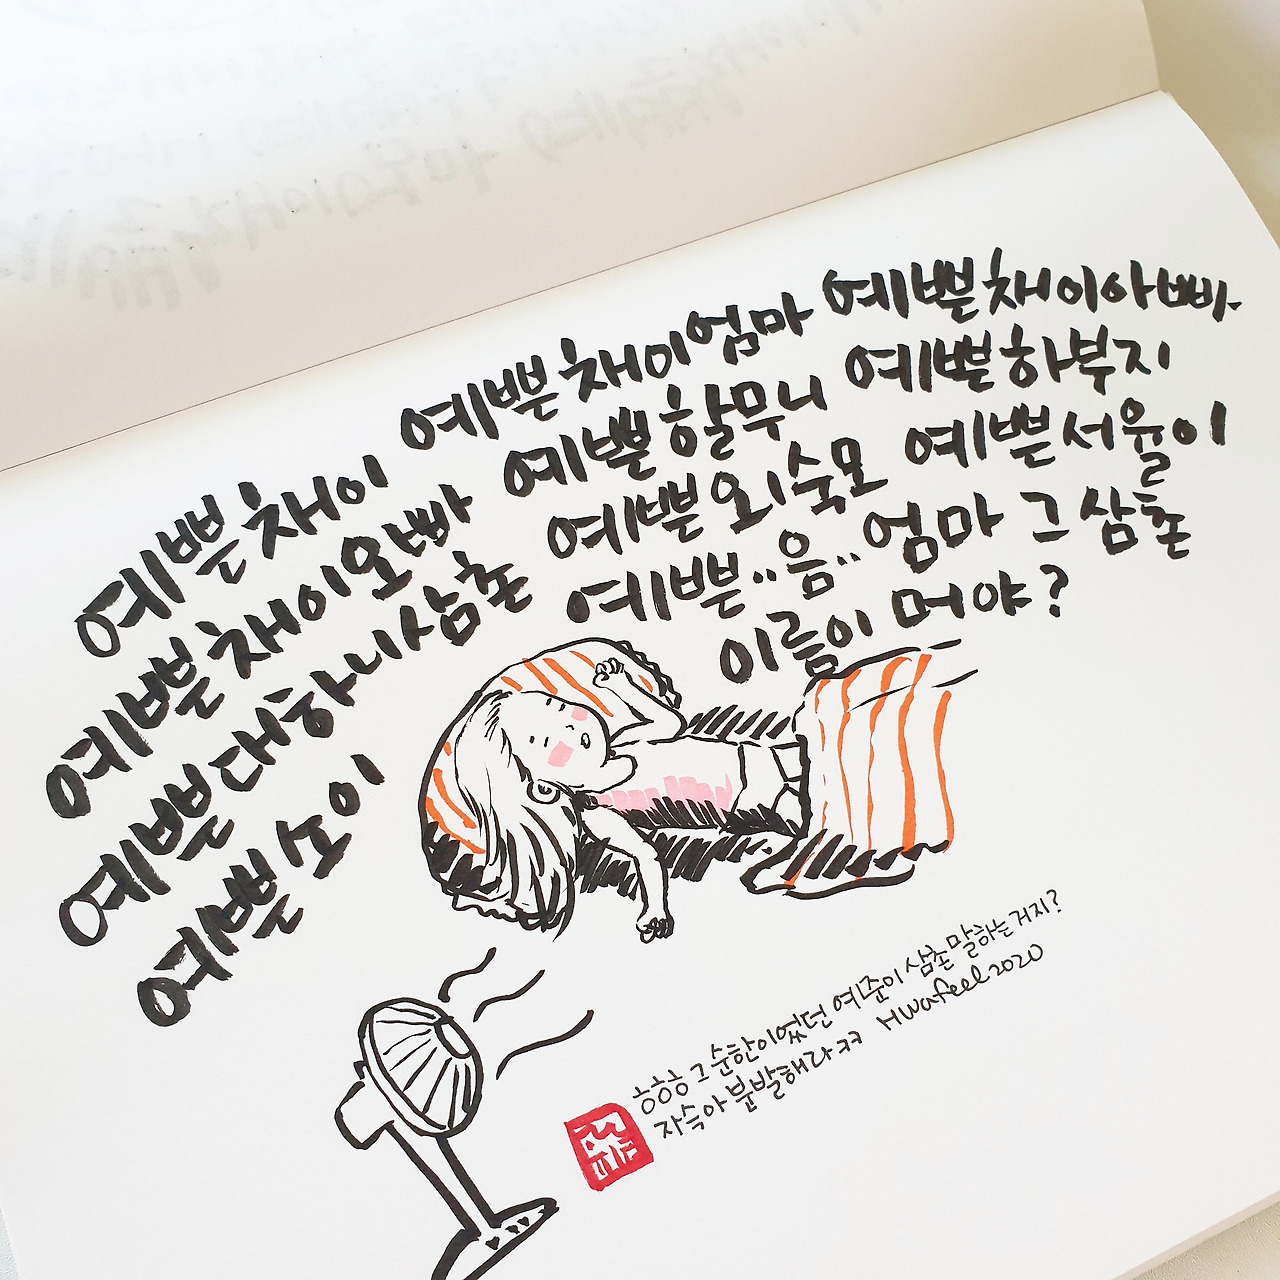 예쁜채이 예쁜채이엄마 예쁜채이아빠
예쁜채이오빠 예쁜할무니 예쁜하부지
예쁜대하니삼촌 예쁜외숙모 예쁜서율이
예쁜소이 예쁜..음..엄마 그 삼촌
이름이 머야?
ㅎㅎㅎ 그 순한이었던 예준이 삼촌 말하는거지?
자슥아 분발해라 ㅋㅋ Hwafeel 2020